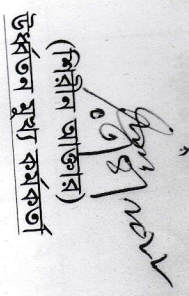 (শিরীন আক্তার)
উর্ধ্বতন মুখ্য কর্মকর্তা